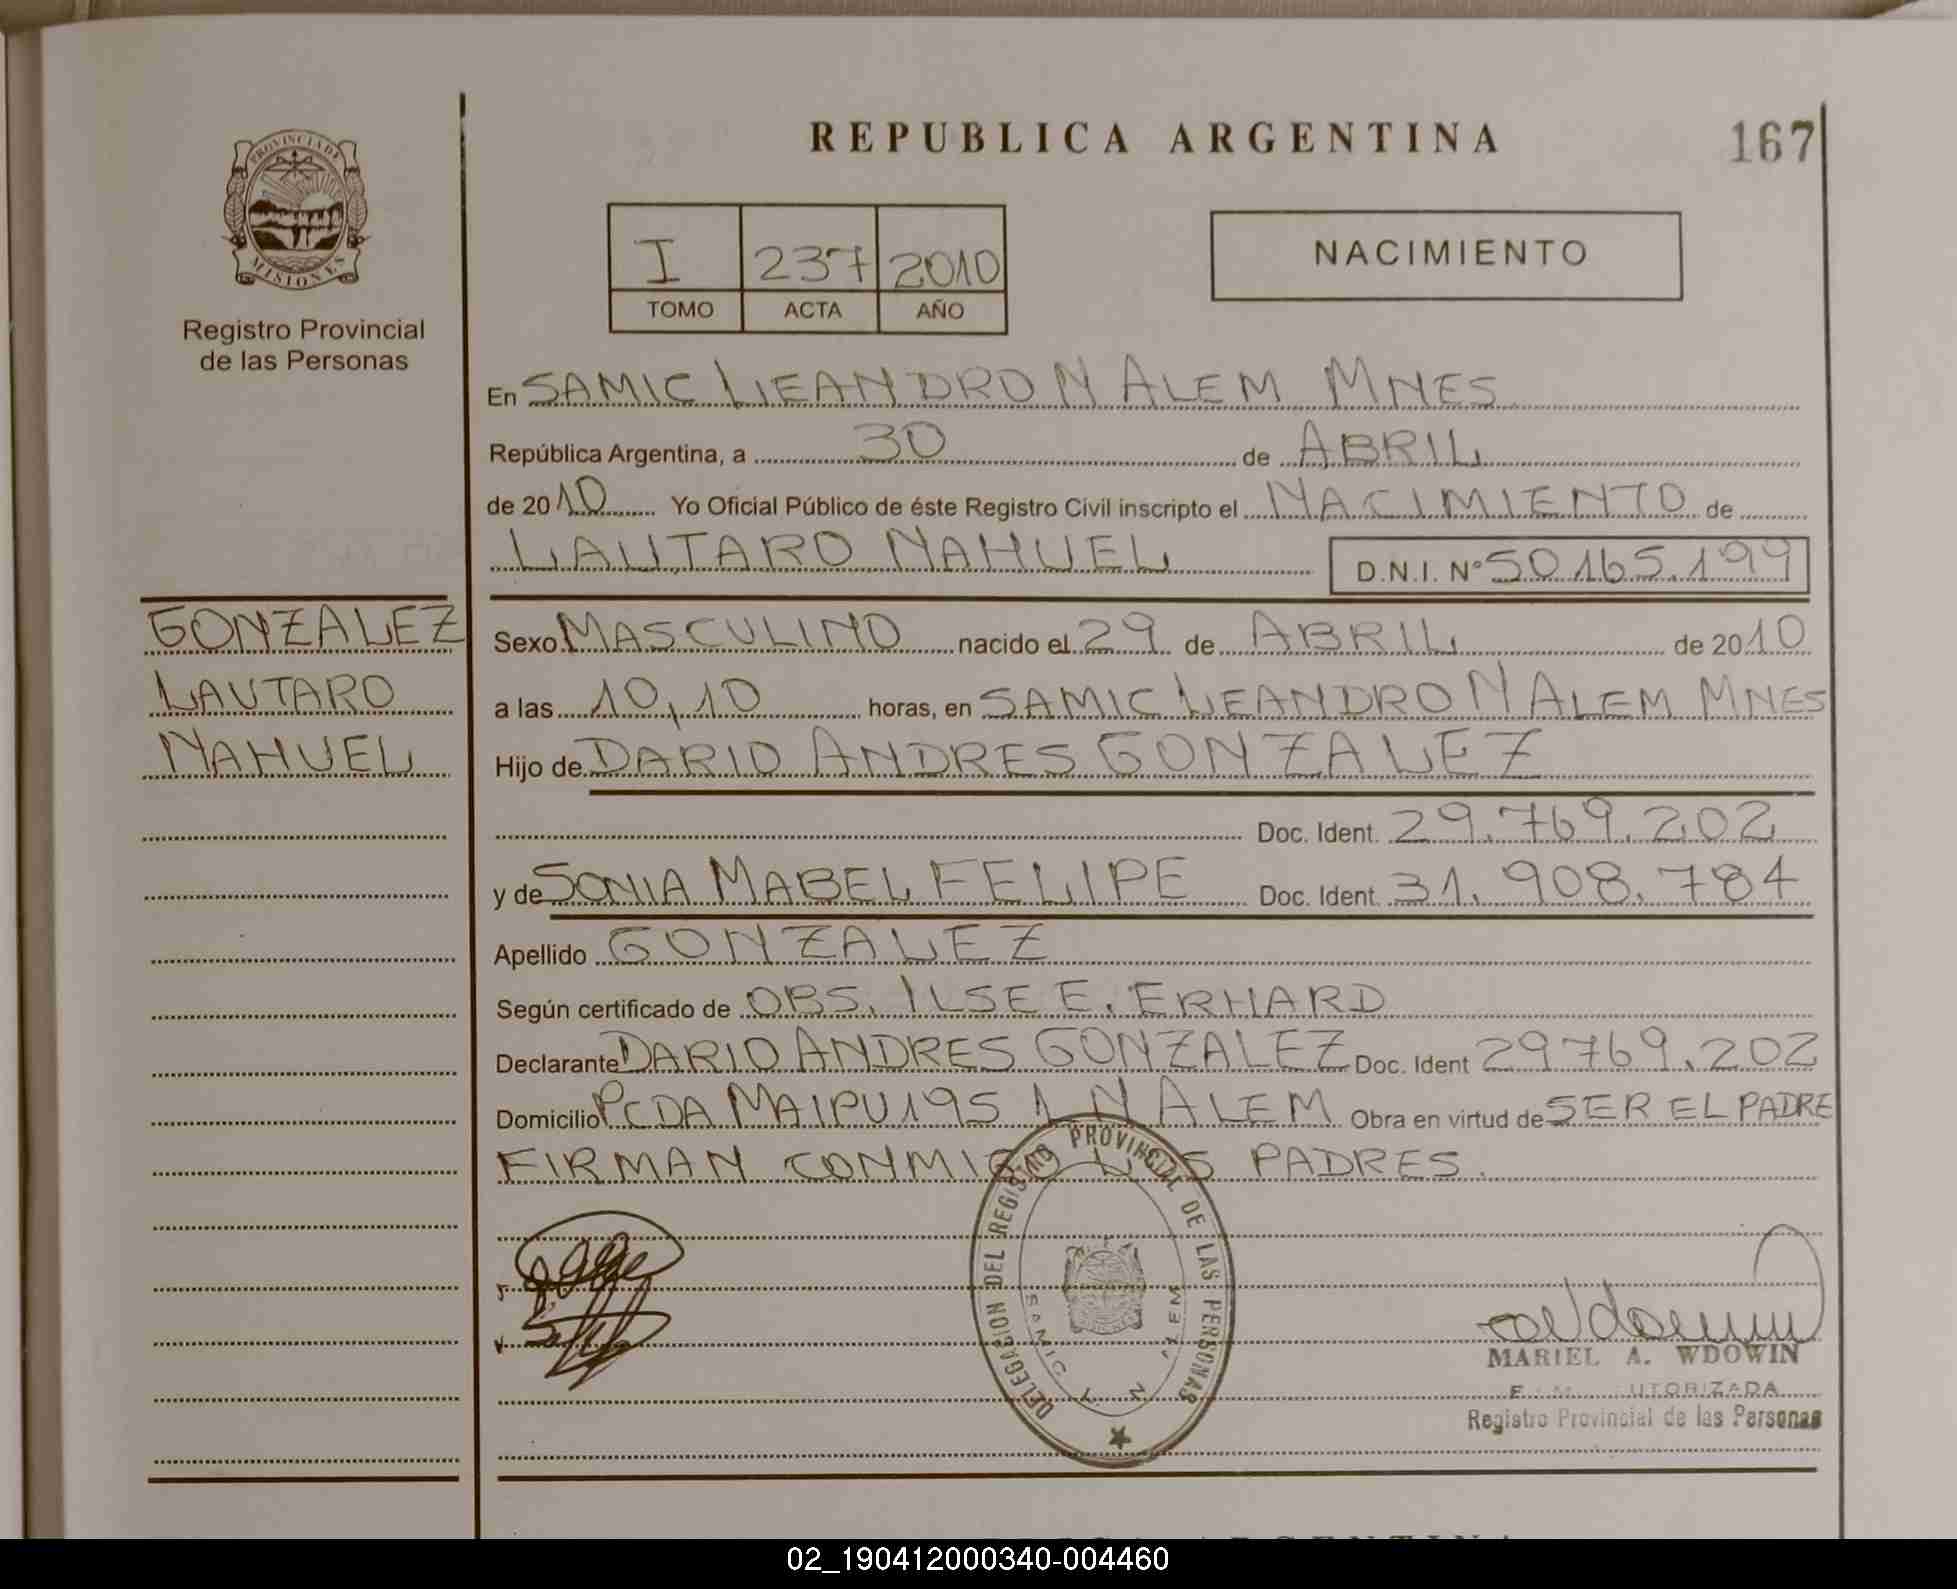 REPUBLICA ARGENTINA
167
PROVINCIA DE
MISIONES
Registro Provincial
de las Personas
I 237 2010
TOMO ACTA AÑO
NACIMIENTO
En SAMIC LEANDRO N ALEM MNES
República Argentina, a 30 de ABRIL
de 2010 Yo Oficial Público de éste Registro Civil inscripto el NACIMIENTO de
LAUTARO NAHUEL D.N.I. Nº 50.165.199
GONZALEZ
LAUTARO
NAHUEL
Sexo MASCULINO nacido el 29 de ABRIL de 2010
a las 10,10 horas, en SAMIC LEANDRO N ALEM MNES
Hijo de DARIO ANDRES GONZALEZ
Doc. Ident. 29.769.202
y de SONIA MABEL FELIPE Doc. Ident. 31.908.784
Apellido GONZALEZ
Según certificado de OBS. ILSE E. ERHARD
Declarante DARIO ANDRES GONZALEZ Doc. Ident 29769.202
Domicilio PCDA MAIPU 195 L N ALEM Obra en virtud de SER EL PADRE
FIRMAN CONMIGO LOS PADRES.
DELEGACION DEL REGISTRO PROVINCIAL DE LAS PERSONAS
SAMIC L N ALEM
MARIEL A. WDOWIN
AUTORIZADA
Registro Provincial de las Personas
02_190412000340-004460